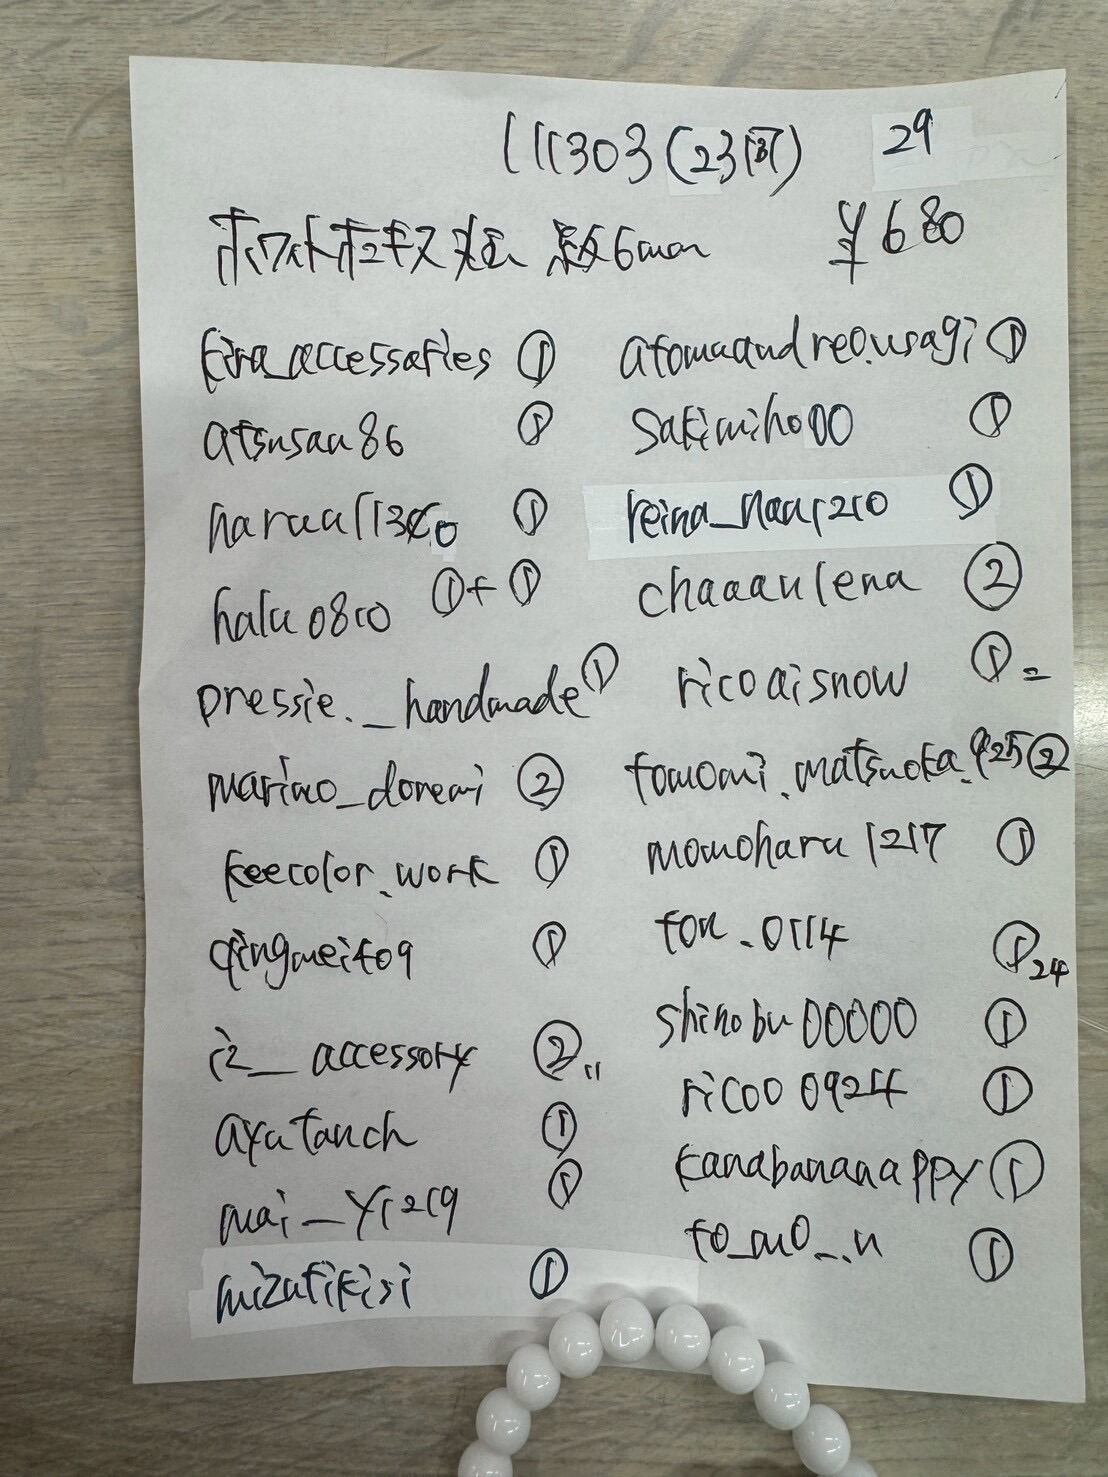 111303 (23可) 29
ホワイトホヌキス 数6mm ¥680
kira_accessaries ①
atsusan86 ①
haruu11300 ①
halu0810 ①+①
pressie._handmade ①
marimo_doremi ②
keecolor.work ①
qingmei409 ①
i2__accessory ②"
ayatanch ①
mai_y1219 ①
mizutikisi ①
atomuandreo.usagi ①
sakimiho00 ①
reina_naa1210 ①
chaaaulena ②
ricoaisnow ①=
tomomi.matsuoka.925 ②
momoharu1217 ①
ton_0114 ①24
shinobu00000 ①
ricoo0924 ①
kanabananappy ①
to_mo_.n ①